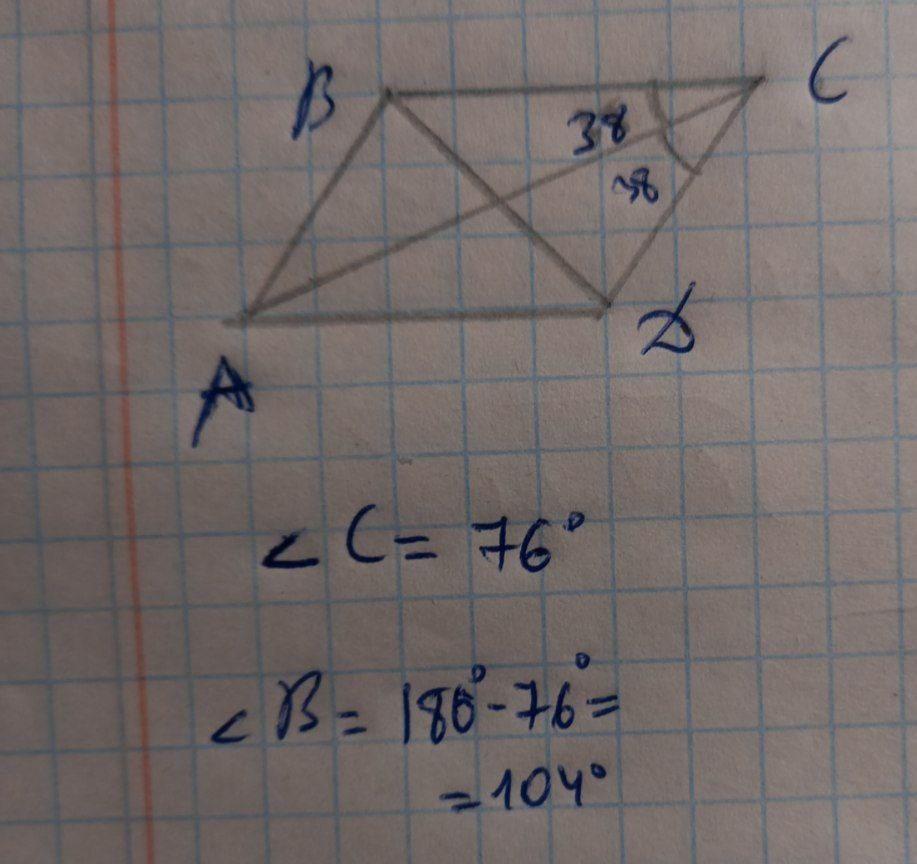 B C
38
38
A D
< C = 76°
< B = 180° - 76° =
= 104°